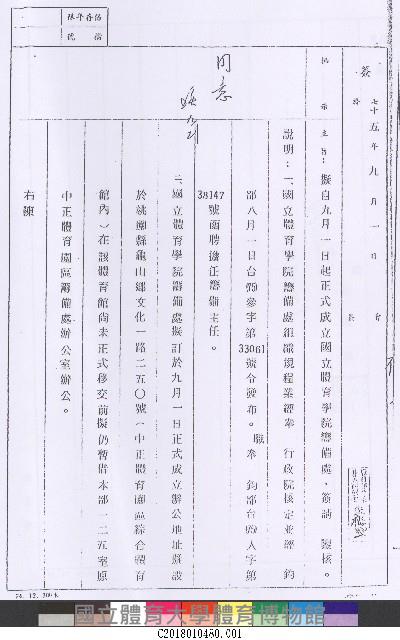 簽
七十五年九月一日
於
批示
主旨：擬自九月一日起正式成立國立體育學院籌備處，簽請　鑒核。
說明：一、國立體育學院籌備處組織規程業經奉　行政院核定並經　鈞
部八月一日台(75)參字第33061號令發布。職奉　鈞部台(75)人字第
38147號函聘擔任籌備主任。
二、國立體育學院籌備處擬訂於九月一日正式成立辦公地址擬設
於桃園縣龜山鄉文化一路二五〇號（中正體育園區綜合體育
館內）在該體育館尚未正式移交前擬仍暫借本部　二五室原
中正體育園區籌備處辦公室辦公。
右陳
同意
檔號
保存年限
74. 12. 200本
國立體育大學體育博物館
C2018010480.001